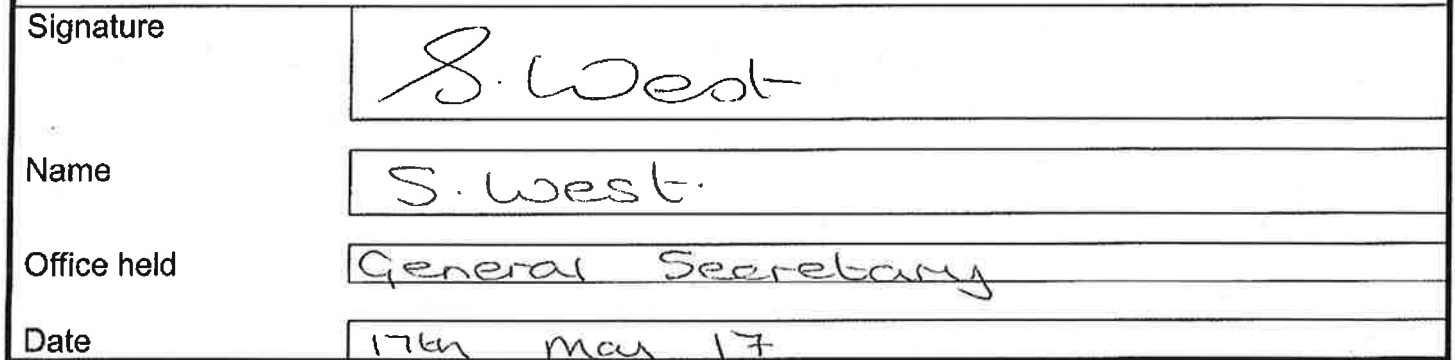 Signature S. West
Name S. West.
Office held General Secretary
Date 17th May 17